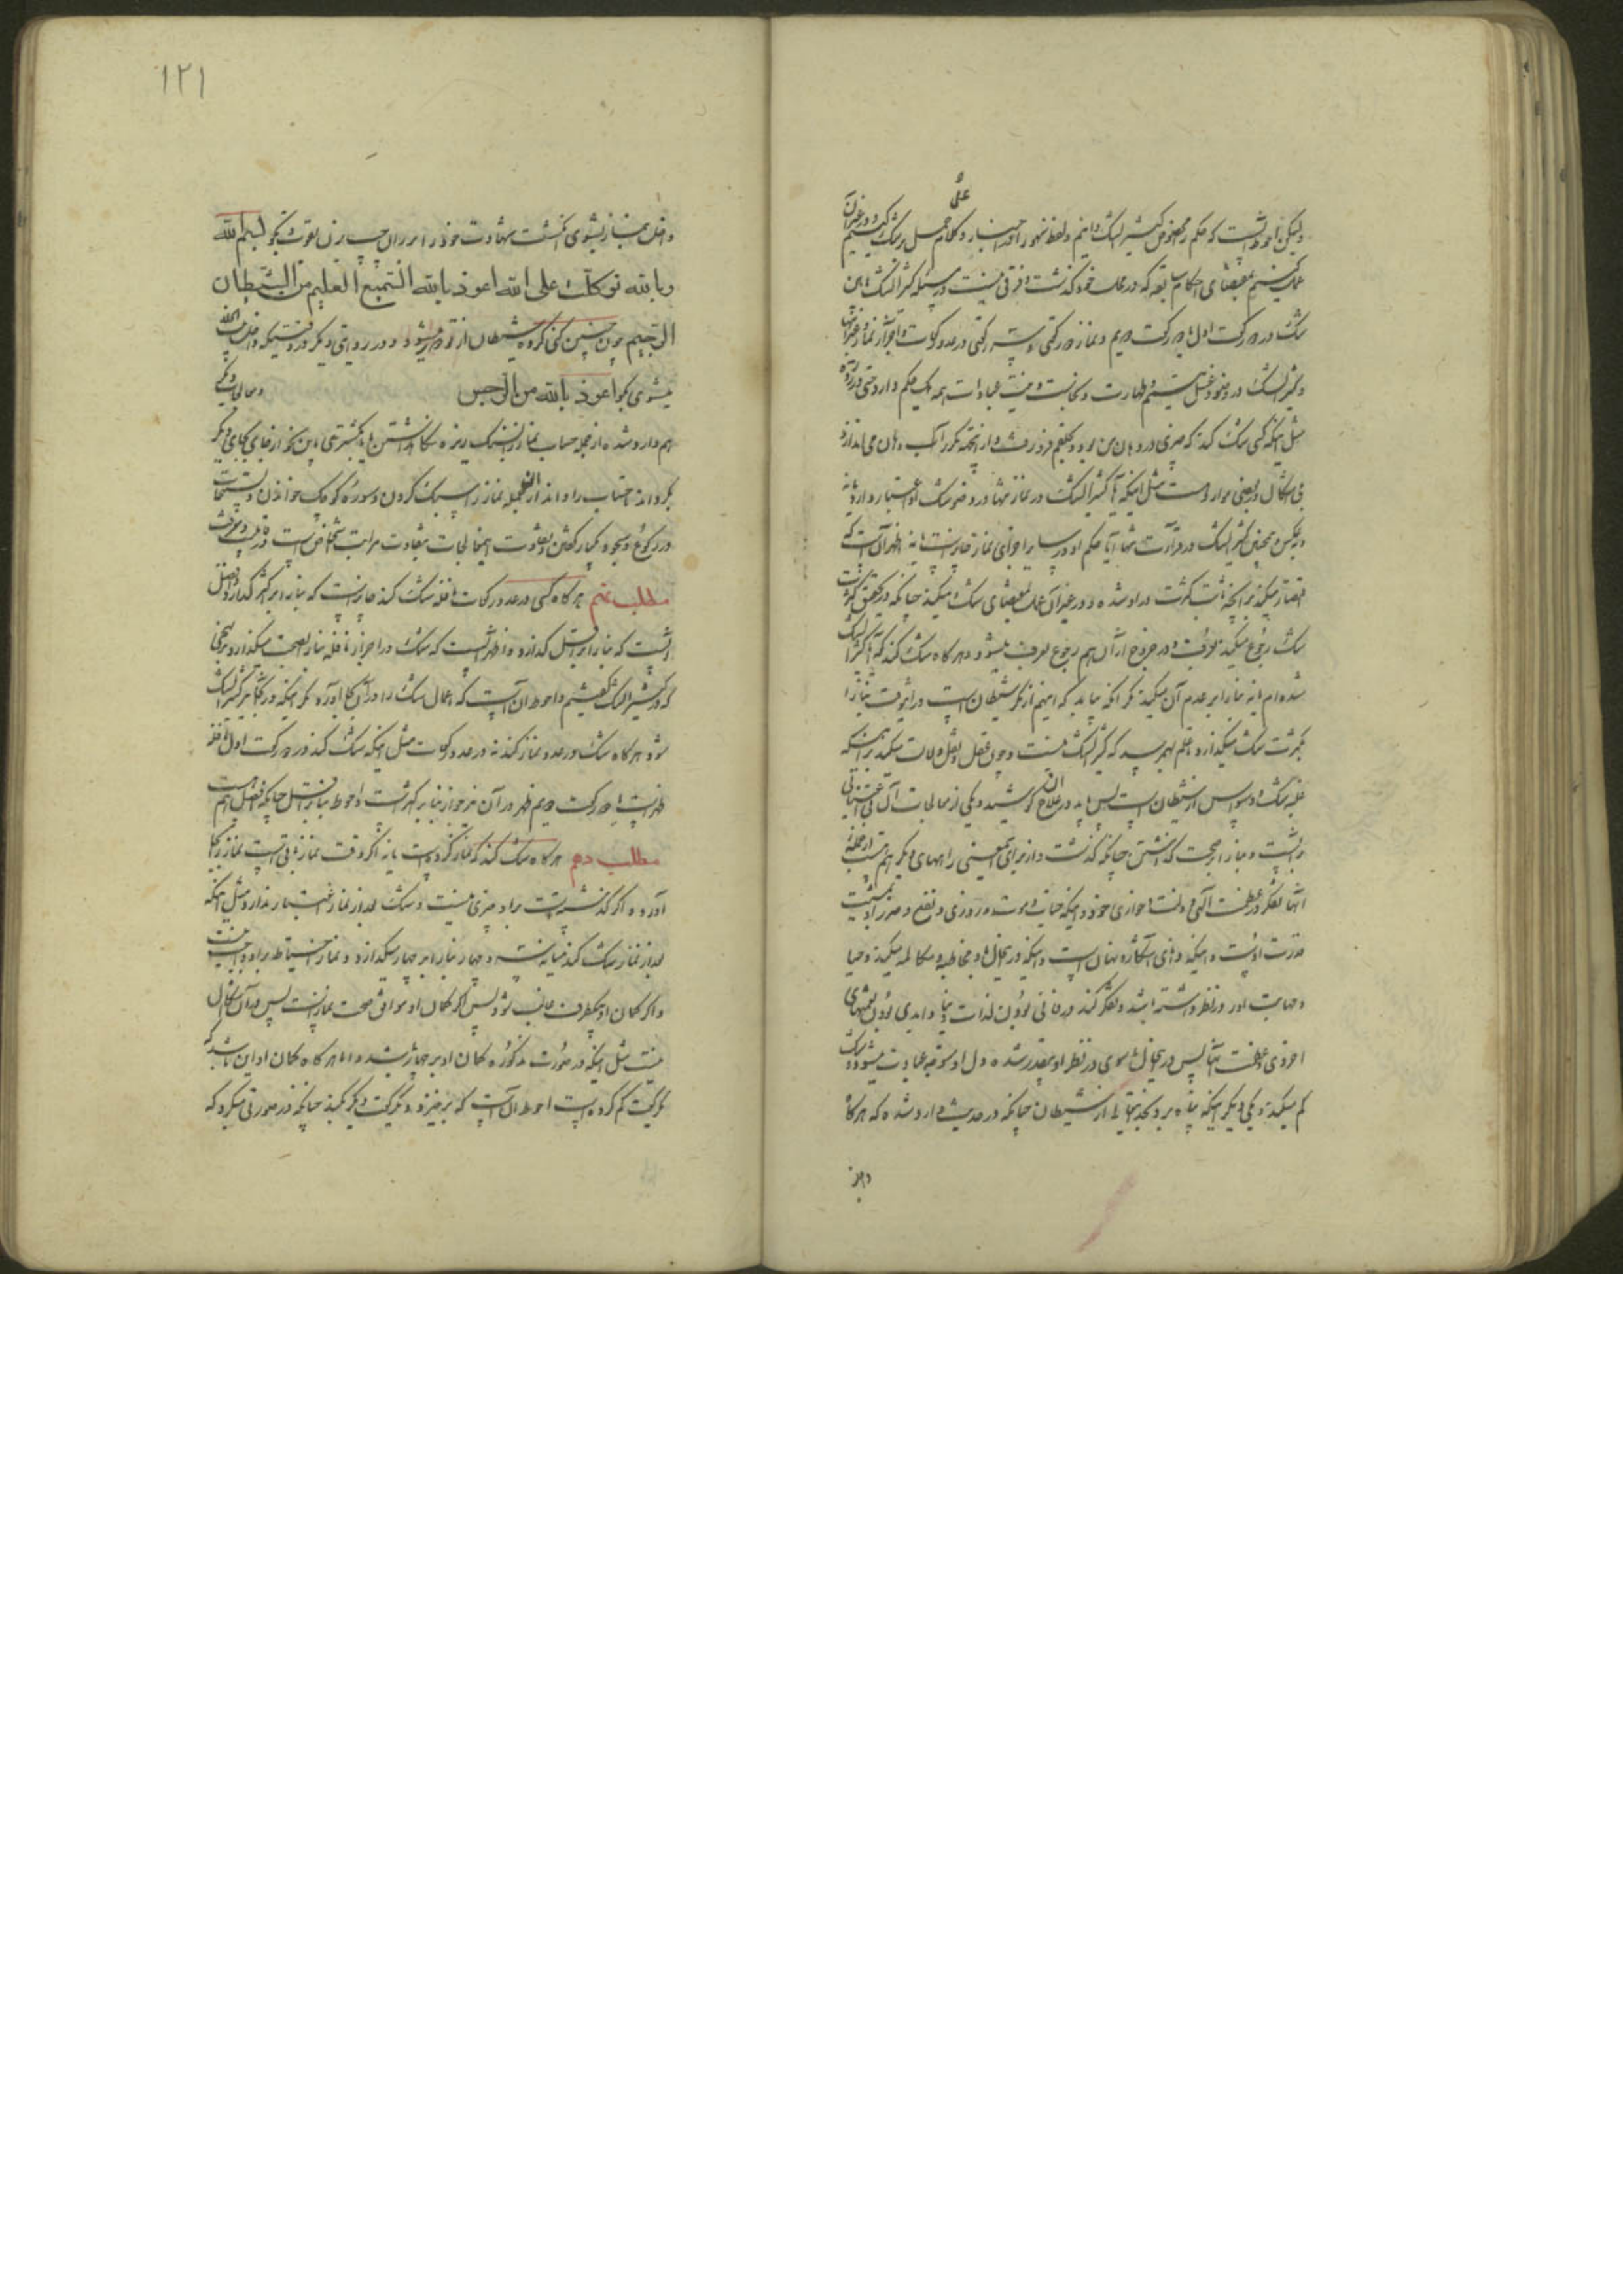 علی
ولیکن احوط آنست که حکم مخصوص کثیر الشک دانیم و لفظ سهو را در اخبار و کلام حمل بر شک کنیم و در غیر آن
عمل کنیم بمقتضای احکام سابقه که در محل خود گذشت و فرقی نیست در مسئله کثیر الشک ما بین
شک در دو رکعت اول یا دو رکعت دویم و نماز دو رکعتی و سه رکعتی در عدد رکعات و اجزای نماز و غیر آنها
و کثیر الشک در وضو و غسل و تیمم و طهارت و نجاست و نیت عبادات همه یک حکم دارد حتی در
مثل اینکه کسی شک کند که چیزی در دهان من بود و بحلقم فرو رفت و از اینجهة مکرر آب دهان می اندازد
فی اشکال در بعضی موارد هست مثل اینکه آیا کثیر الشک در نماز مثلا در وضو شک او اعتبار دارد یا نه
و بر عکس و همچنین کثیر الشک در قرائت مثلا آیا حکم او در سایر اجزای نماز جاریست یا نه اظهر آن است که
اقتصار میکند بر آنچه ثابت کثرت در او شده و در غیر آن عمل بمقتضای شک میکند چنانکه در تحقق کثرت
شک رجوع میکند بعرف و در خروج از آن هم رجوع بعرف میشود و هر گاه شک کند که آیا کثیر الشک
شده ام یا نه بنا را بر عدم آن میکند مگر آنکه بیابد که اینهم از مکر شیطان است در اینوقت بنا را
بکثرت شک میگذارد تا علم بهم رسد که کثیر الشک نیست و چون عقل و نقل دلالت میکند بر اینکه
غلبه شک و وسواس از شیطان است پس باید در علاج آن کوشید و یکی از معالجات آن بی اعتنائی
بر آنست و بنا را بر صحت گذاشتن چنانکه گذشت و از برای اینمعنی راههای دیگر هم هست از جمله
آنها تفکر در عظمت الهی و ذلت و خواری خود و اینکه حیات و موت و روزی و نفع و ضرر او در مشیت
قدرت اوست و اینکه دانای آشکارا و نهان است و اینکه در اینحال با او مخاطبه و مکالمه میکند و حیا
و مهابت او در نظر داشته باشد و تفکر کند در فانی بودن لذات دنیا و ابدی بودن نعمتهای
اخروی و عظمت آنها پس در اینحال ما سوی در نظر او بیقدر شده دل او متوجه عبادت میشود و شک
کم میکند و یکی دیگر اینکه پناه برد بخدایتعالی از شیطان چنانکه در حدیث وارد شده که هر گاه
داخل
۱۲۱
داخل نماز میشوی انگشت شهادت خود را بر ران چپ بزن بقوت و بگو بسم الله
وبالله توکلت علی الله اعوذ بالله السمیع العلیم من الشیطان
الرجیم چون چنین کنی گروه شیطان از تو دور میشود و در روایتی دیگر در وقتیکه داخل بیت الخلا
میشوی بگو اعوذ بالله من الرجس و معالجات دیگر
هم وارد شده از جمله حساب نماز را بسنگ ریزه نگاه داشتن یا بانگشتری باین نحو از جای بجای دیگر
بگرداند حساب را و اند از آنجمله نماز را سبک کردن و سوره کوچک خواندن و تسبیحات
در رکوع و سجود یکبار گفتن و تفاوت اینمعالجات بتفاوت مراتب اشخاص است
مطلب نهم هر گاه کسی در عدد رکعات نافله شک کند جایز است که بنا را بر اکثر گذارد و افضل
آنست که بنا را بر اقل گذارد و اظهر آنست که شک در اجزای نافله بنا را بصحت میگذارد بر نهجی
که در کثیر الشک گفتیم و احوط آن است که اعمال شک را در آن بجا آورد مگر اینکه در آنجا نیز کثیر الشک
شود هر گاه شک در عدد نماز کند نه در عدد رکعات مثل اینکه شک کند در دو رکعت اول نافله
ظهر است یا دو رکعت دویم ظهر در آن نیز جواز بنا بر اکثر است و احوط بنا بر اقل چنانکه افضل هم
مطلب دهم هر گاه شک کند که نماز کرده است یا نه اگر وقت نماز باقی است نماز را بجا
آورد و اگر گذشته است بر او چیزی نیست و شک بعد از نماز اعتبار ندارد مثل اینکه
بعد از نماز شک کند میانه سه و چهار بنا را بر چهار میگذارد و نماز احتیاط بر او واجب نیست
و اگر گمان او بیکطرف غالب شود پس اگر گمان او موافق صحت نماز است پس در آن اشکال
نیست مثل اینکه در صورت مذکوره گمان او بر چهار باشد و اما هر گاه گمان او این باشد که
یکرکعت کم کرده است احوط آن است که برخیزد و یکرکعت دیگر بکند چنانکه در صورتی میکرد که